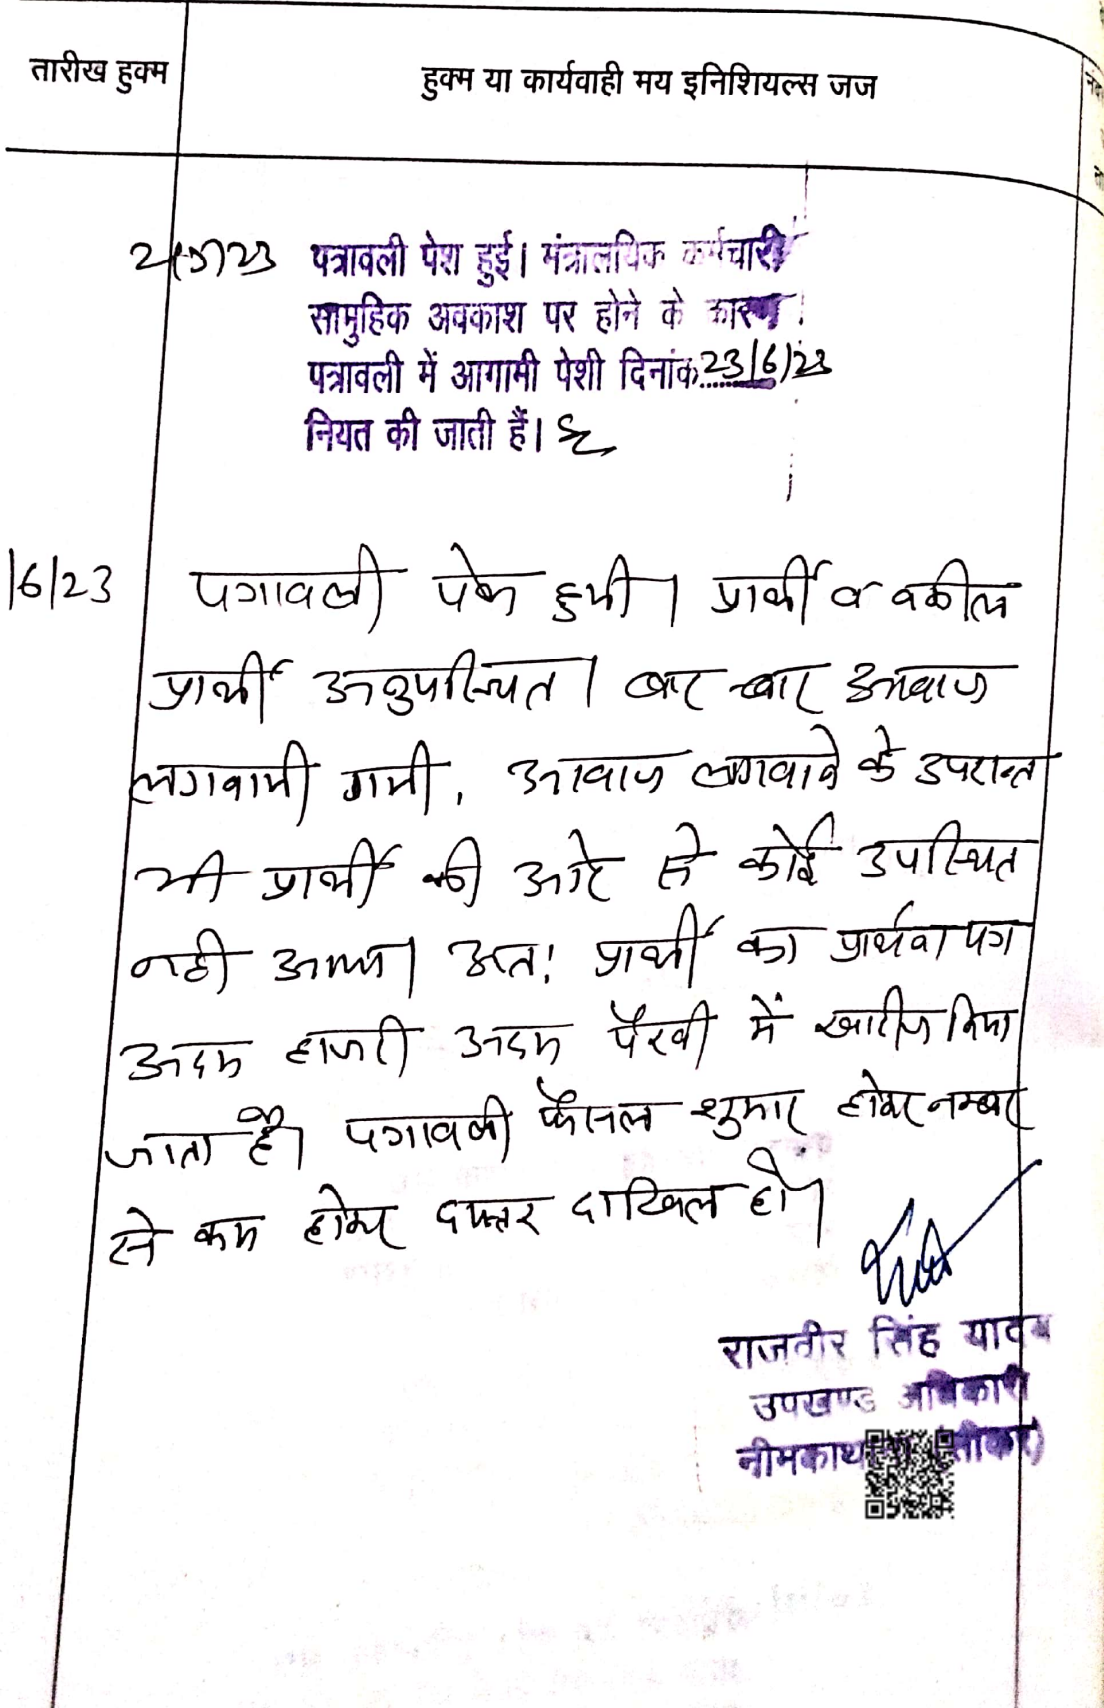 तारीख हुक्म
हुक्म या कार्यवाही मय इनिशियल्स जज
पत्रावली पेश हुई। मंत्रालयिक कर्मचारी
सामुहिक अवकाश पर होने के कारण
पत्रावली में आगामी पेशी दिनांक 23/6/23
नियत की जाती हैं।
/6/23
पत्रावली पेश हुयी। प्रार्थी व वकील
प्रार्थी अनुपस्थित। बार-बार आवाज
लगवायी गयी, आवाज लगवाने के उपरान्त
भी प्रार्थी की ओर से कोई उपस्थित
नही आया। अत: प्रार्थी का प्रार्थना पत्र
अदम हाजरी अदम पैरवी में खारीज किया
जाता है। पत्रावली फैसल शुमार होकर नम्बर
से कम होकर दफ्तर दाखिल हो।
राजवीर सिंह यादव
उपखण्ड अधिकारी